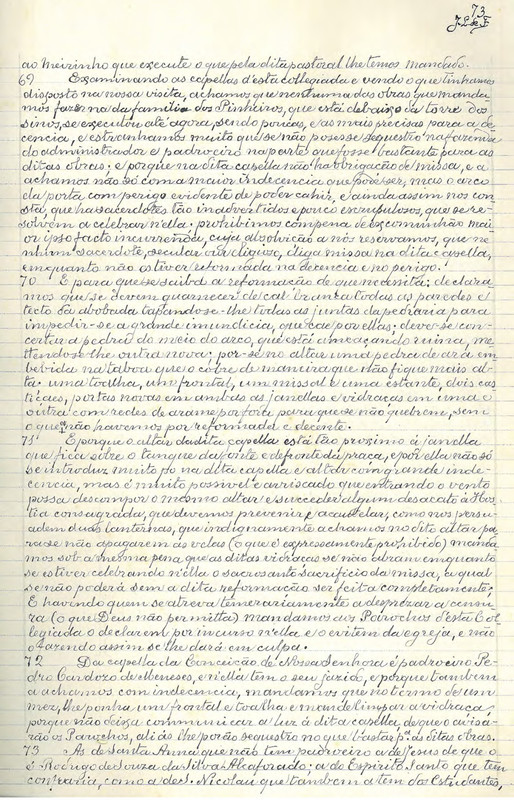 73
ao meirinho que execute o que pela dita pastoral lhe temos mandado.
69 Examinando as capellas d'esta collegiada e vendo o que tinhamos
disposto na nossa visita, achamos que nenhuma das obras que manda
mos fazer na da familia dos Pinheiros, que está debaixo da torre dos
sinos, se executou até agora, sendo poucas, e as mais precisas para a de
cencia, e estranhamos muito que se não posesse sequestro na fazenda
do administrador e padroeiro na parte que fosse bastante para as
ditas obras: e porque na dita capella não ha obrigação de missa, e a
achamos não só com a maior indecencia que pode ser, mas o arco
da porta com perigo evidente de poder cahir, e ainda assim nos con
sta, que ha sacerdotes tão inadvertidos e pouco escrupulosos, que se re-
solvem a celebrar n'ella: prohibimos com pena de excommunhão mai
or ipso facto incurrenda, cuja absolvição a nós reservamos, que ne
nhum sacerdote, secular ou religioso, diga missa na dita capella,
emquanto não estiver reformada na decencia e no perigo.
70 E para que se saiba a reformação de que necessita: declara
mos que se devem guarnecer de cal branca todas as paredes e
tecto da abobada tapando-se-lhe todas as juntas da pedraria para
impedir-se a grande immundicia, que cae por ellas: deve-se con-
certar a pedra do meio do arco, que está ameaçando ruina, me
ttendo-se-lhe outra nova: por-se no altar uma pedra de ara em
bebida na taboa que o cobre de maneira que não fique mais al-
ta: uma toalha, um frontal, um missal e uma estante, dois cas
tiçaes, portas novas em ambas as janellas e vidraças em uma e
outra com redes de arame por fora para que se não quebrem, sem
o que não havemos por reformada e decente.
71 E porque o altar da dita capella está tão proximo á janella
que fica sobre o tanque da fonte e defronte da praça, e por ella não só
se introduz muito pó na dita capella e altar com grande inde-
cencia, mas é muito possivel e arriscado que entrando o vento
possa descompor o mesmo altar e succeder algum desacato á Hos-
tia consagrada, que devemos prevenir e acautelar, como nos persu-
adem duas lanternas, que indignamente achamos no dito altar pa
ra se não apagarem as velas (o que é expressamente prohibido) manda
mos sob a mesma pena que as ditas vidraças se não abram emquanto
se estiver celebrando n'ella o sacrosanto sacrificio da missa, a qual
se não poderá sem a dita reformação ser feita completamente;
E havendo quem se atreva temerariamente a desprezar a censu
ra (o que Deus não permitta) mandamos aos Parochos d'esta Col
legiada o declarem por incurso n'ella e o evitem da egreja, e não
o fazendo assim se lhe dará em culpa.
72 Da capella da Conceição de Nossa Senhora é padroeiro Pe
dro Cardozo de Meneses, e n'ella tem o seu jazido, e porque tambem
a achamos com indecencia, mandamos que no termo de um
mez, lhe ponha um frontal e toalha e mande limpar a vidraça,
porque não deixa communicar a luz á dita capella, de que o avisa-
rão os Parochos, aliás lhe porão sequestro no que bastar pª as ditas obras.
73 As de Santa Anna que não tem padroeiro a de Jesus de que o
é Rodrigo de Souza da Silva Alcaforado: a do Espirito Santo que tem
confraria, como a de S. Nicolau que tambem a tem dos Estudantes,